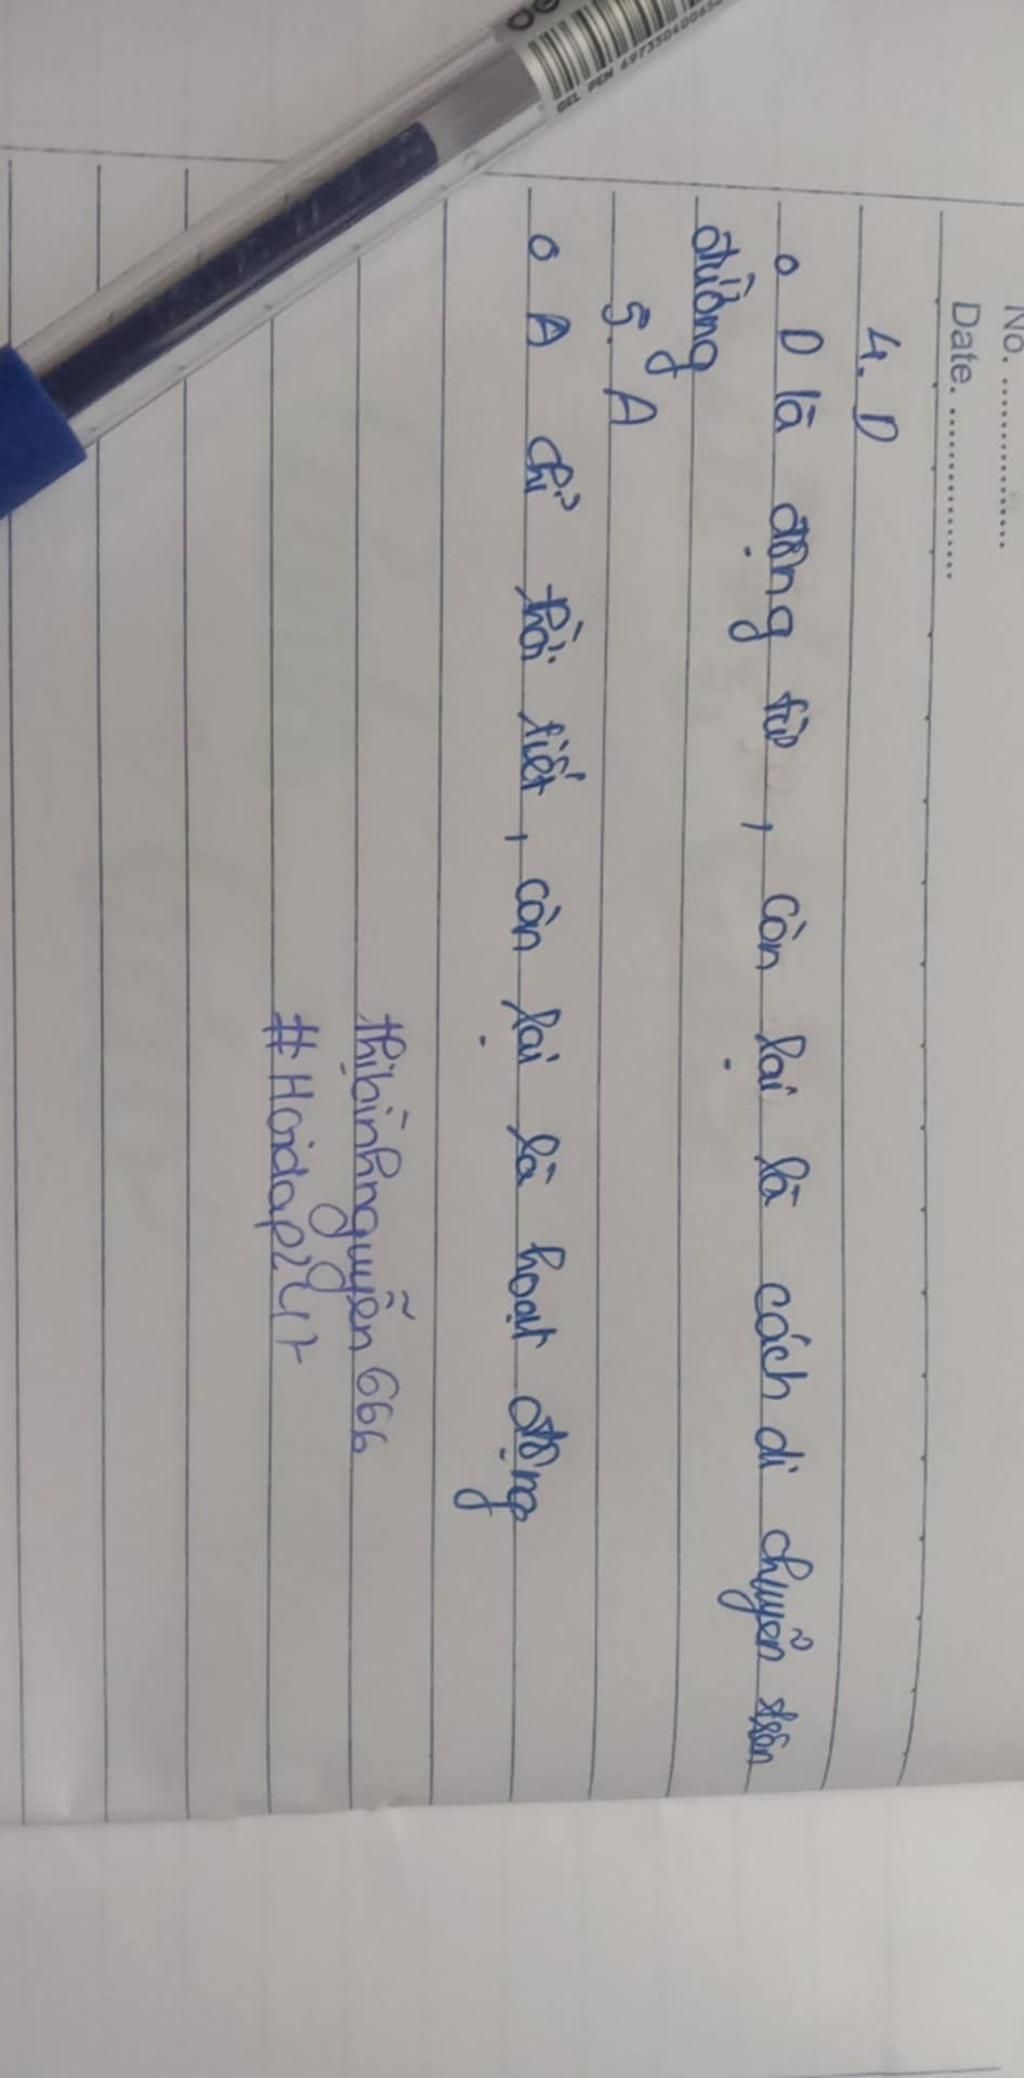 No. ...............
Date. ...............
4. D
o D là động từ, còn lại là cách di chuyển trên
đường
5. A
o A chỉ thời tiết, còn lại là hoạt động
thịbìnhnguyễn666
#Hoidap247
GEL PEN